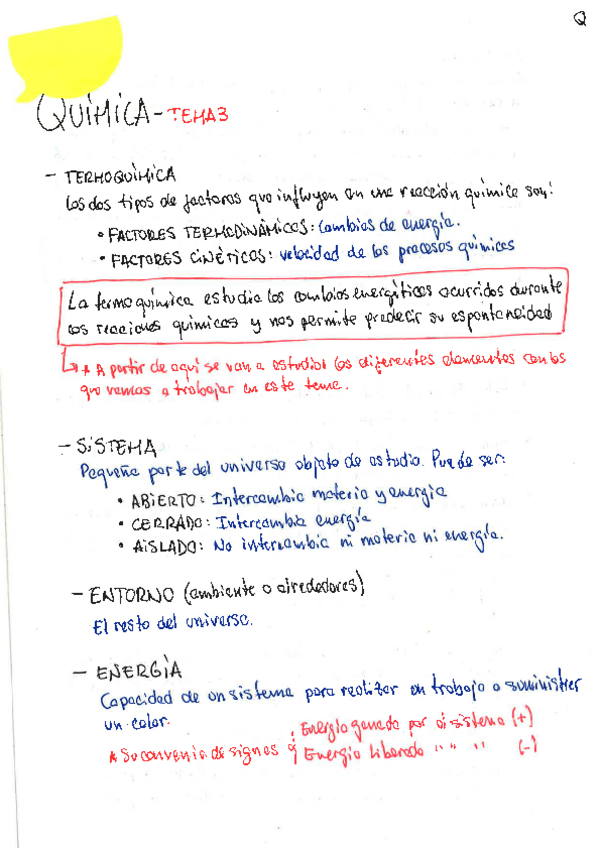 Q
QUÍMICA - TEMA 3
- TERMOQUÍMICA
Los dos tipos de factores que influyen en una reacción química son:
• FACTORES TERMODINÁMICOS: Cambios de energía.
• FACTORES CINÉTICOS: velocidad de los procesos químicos
La termoquímica estudia los cambios energéticos ocurridos durante
las reacciones químicas y nos permite predecir su espontaneidad
↳ * A partir de aquí se van a estudiar los diferentes elementos con los
que vamos a trabajar en este tema.
- SISTEMA
Pequeña parte del universo objeto de estudio. Puede ser:
• ABIERTO: Intercambia materia y energía
• CERRADO: Intercambia energía
• AISLADO: No intercambia ni materia ni energía.
- ENTORNO (ambiente o alrededores)
El resto del universo.
- ENERGÍA
Capacidad de un sistema para realizar un trabajo o suministrar
un calor.
* Su convenio de signos
Energía ganada por el sistema (+)
Energía liberada " " " (-)